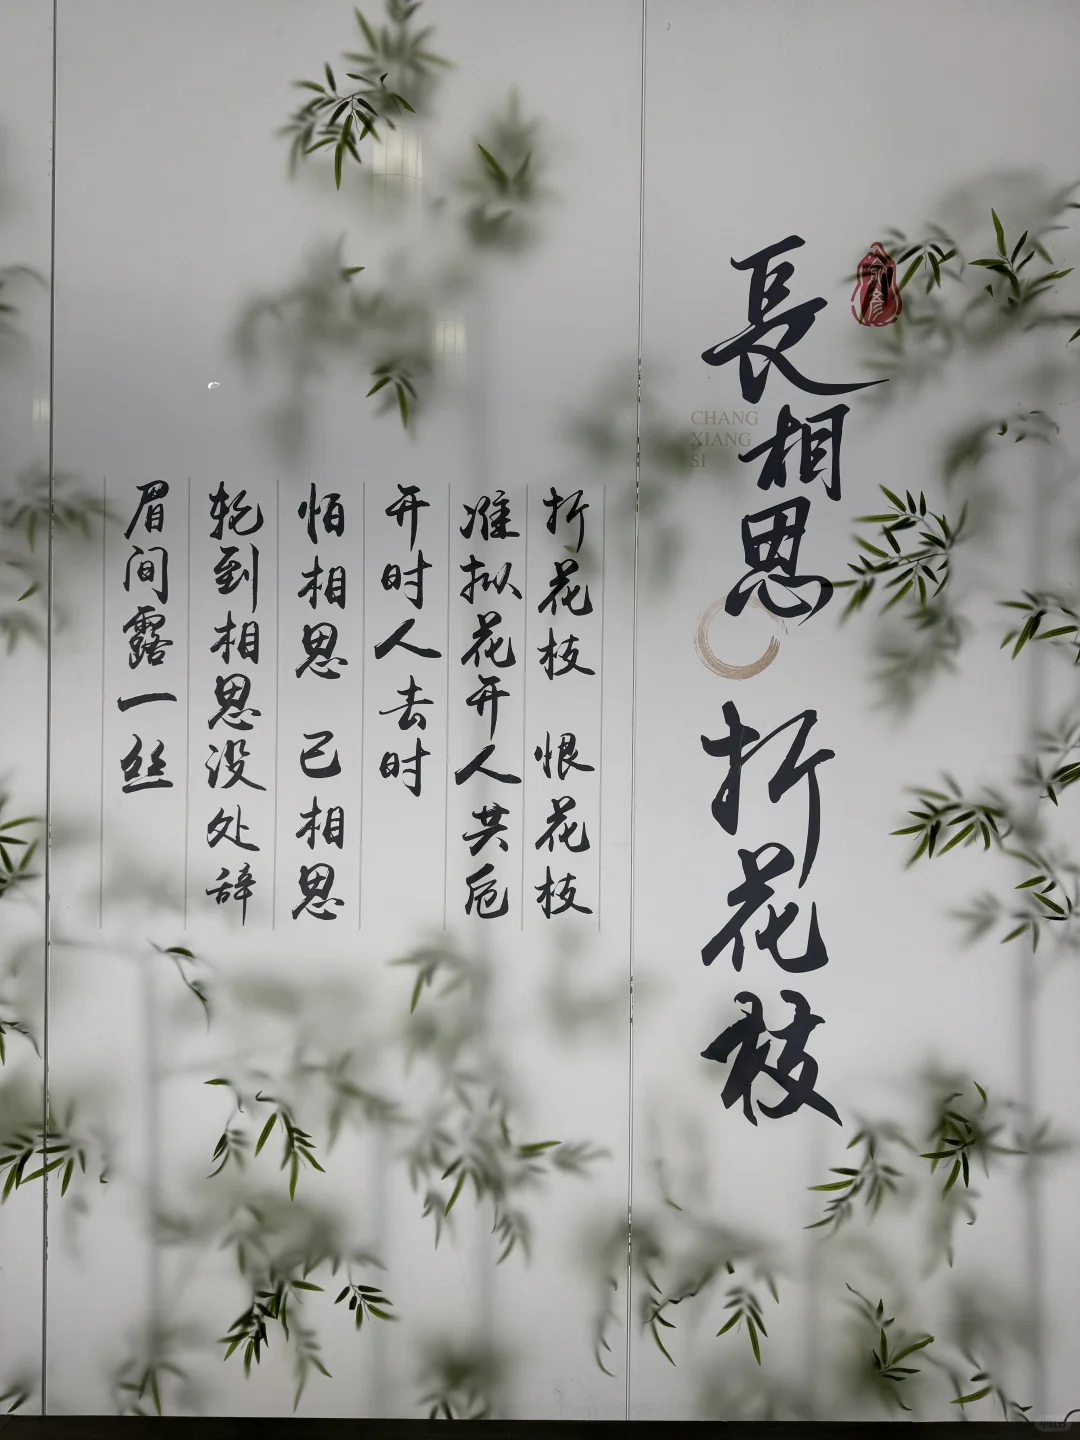 長相思 折花枝
CHANG
XIANG
SI
折花枝 恨花枝
准拟花开人共卮
开时人去时
怕相思 已相思
轮到相思没处辞
眉间露一丝